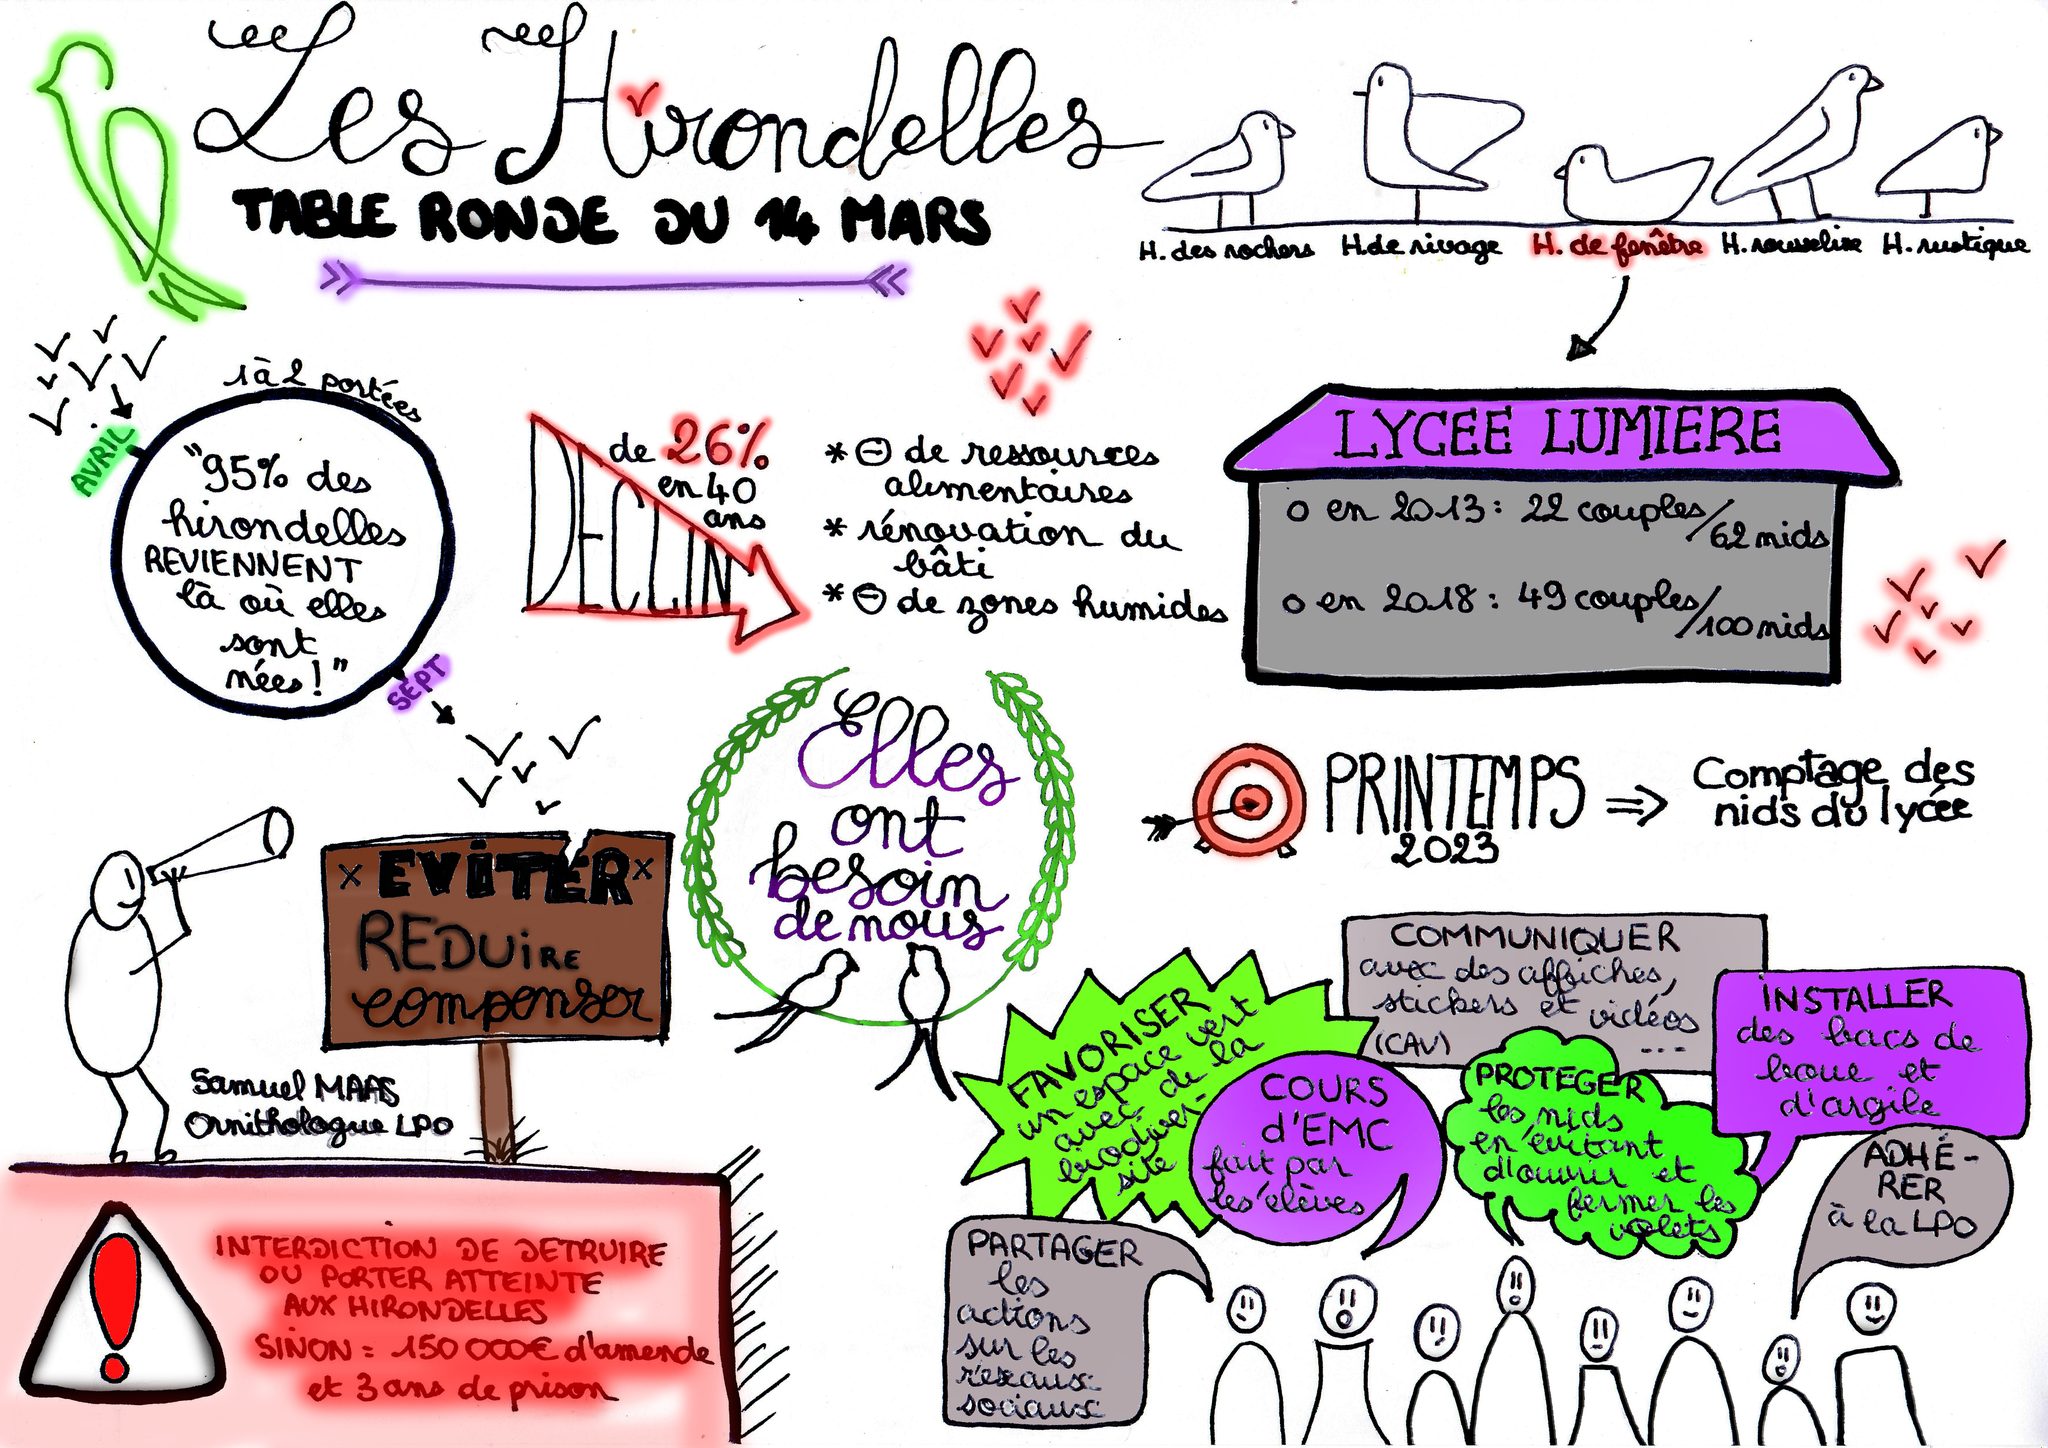 Les Hirondelles
TABLE RONDE DU 14 MARS
H. des rochers
H. de rivage
H. de fenêtre
H. rousseline
H. rustique
AVRIL
1 à 2 portées
"95% des
hirondelles
REVIENNENT
là où elles
sont
nées !"
SEPT
DECLIN
de 26%
en 40
ans
* ⊖ de ressources
alimentaires
* rénovation du
bâti
* ⊖ de zones humides
LYCEE LUMIERE
o en 2013 : 22 couples/
62 nids
o en 2018 : 49 couples/
100 nids
Elles
ont
besoin
de nous
PRINTEMPS
2023
⇒ Comptage des
nids du lycée
x EViTER x
REDUiRE
compenser
Samuel MAAS
Ornithologue LPO
INTERDICTION DE DETRUIRE
OU PORTER ATTEINTE
AUX HIRONDELLES
SINON = 150 000€ d'amende
et 3 ans de prison
FAVORISER
un espace vert
avec de la
biodiver-
sité
COMMUNIQUER
avec des affiches,
stickers et vidéos
(CAV) ...
INSTALLER
des bacs de
boue et
d'argile
COURS
d'EMC
fait par
les élèves
PROTEGER
les nids
en évitant
d'ouvrir et
fermer les
volets
ADHÉ-
RER
à la LPO
PARTAGER
les
actions
sur les
réseaux
sociaux